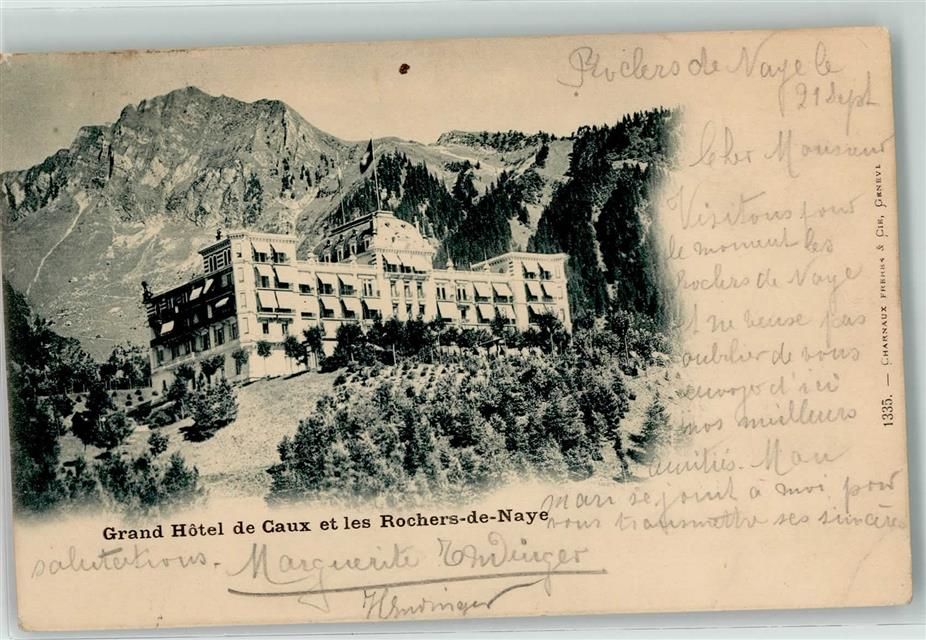 Rochers de Naye le
21 Sept
Cher Monsieur
Visitons pour
le moment les
Rochers de Naye
et ne veux pas
oublier de vous
envoyer d'ici
nos meilleurs
amitiés. Mon
mari se joint à moi pour
vous transmettre ses sincères
salutations. Marguerite
Grand Hôtel de Caux et les Rochers-de-Naye
1335. — CHARNAUX FRÈRES & CIE, GENÈVE